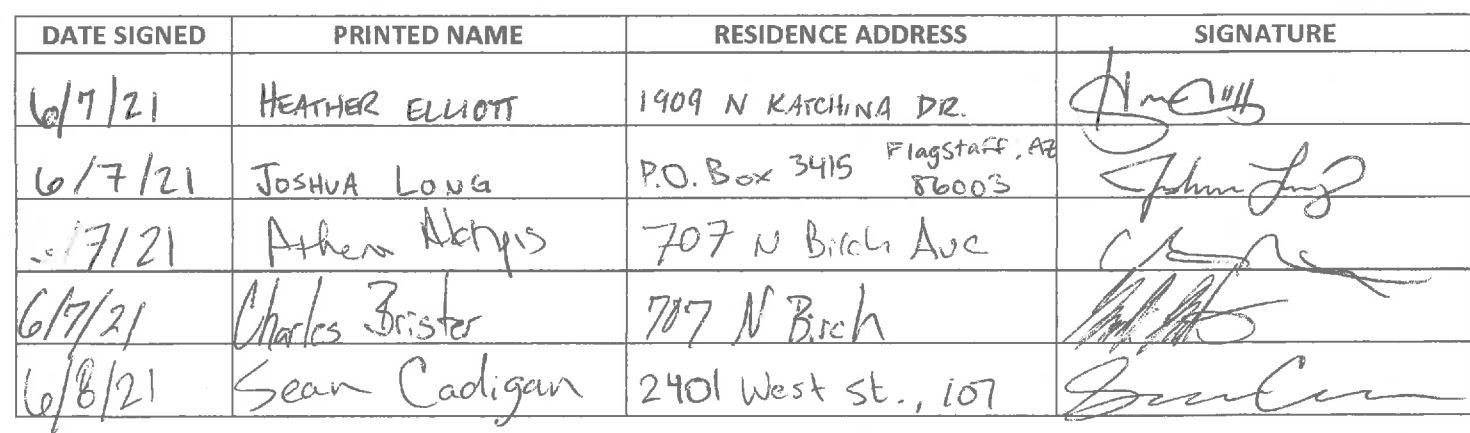 DATE SIGNED PRINTED NAME RESIDENCE ADDRESS SIGNATURE
6/7/21 HEATHER ELLIOTT 1909 N KATCHINA DR.
6/7/21 JOSHUA LONG P.O. Box 3415 Flagstaff, AZ 86003 Joshua Long
/7/21 Athena 707 N Birch Ave
6/7/21 Charles Brister 707 N Birch
6/8/21 Sean Cadigan 2401 West st., 107